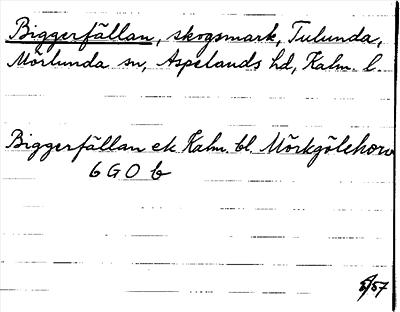 Biggerfällan, skogsmark, Tulunda,
Mörlunda sn, Aspelands hd, Kalm. l.
Biggerfällan ek Kalm. bl. Mörkgölehorv
6 G O b
5/57